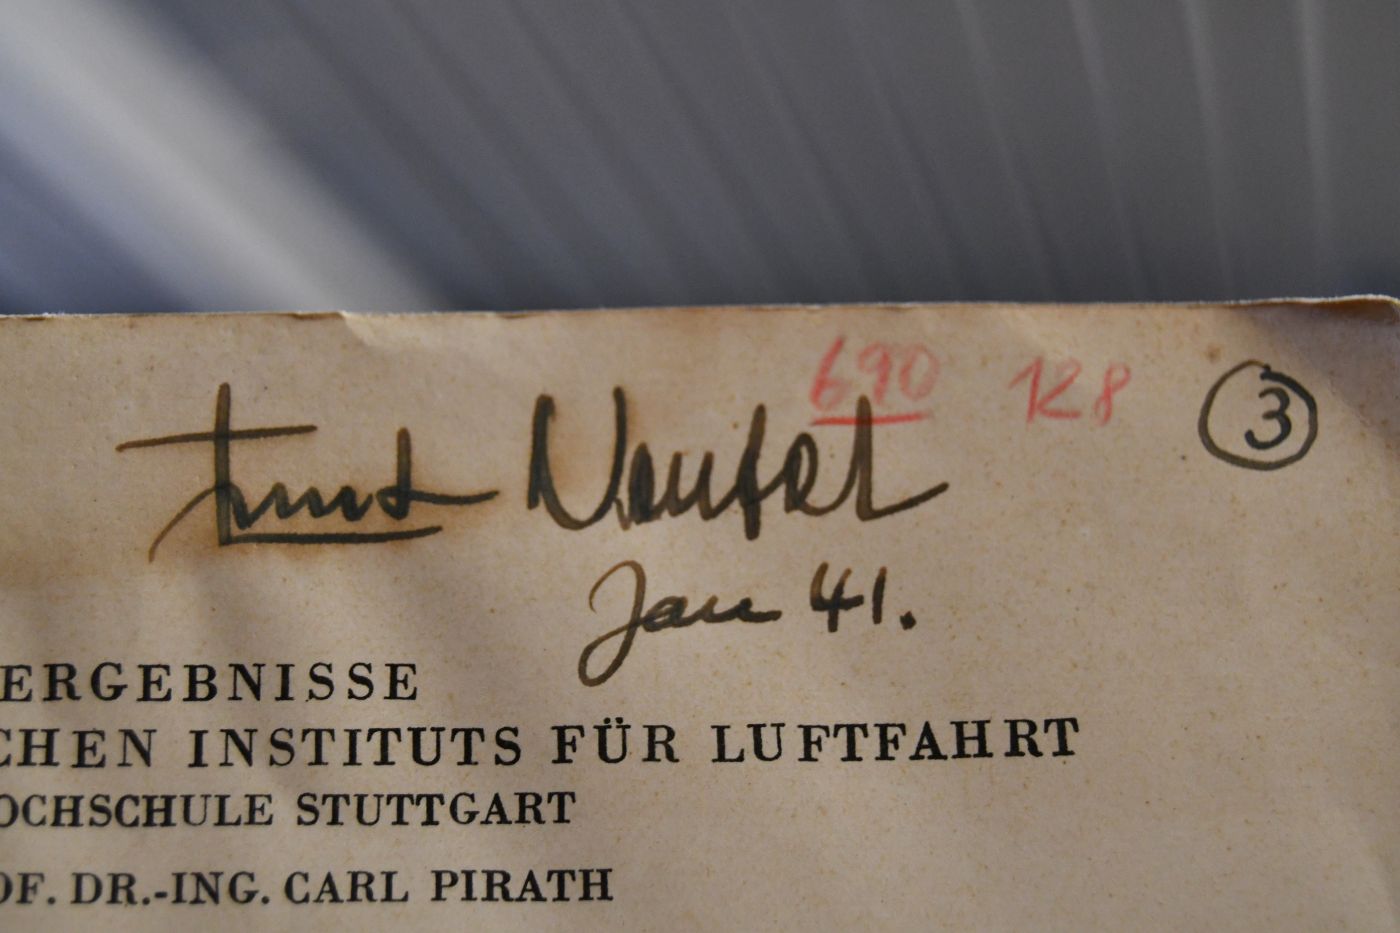 690 128 3
Ernst Neufert
Jan 41.
ERGEBNISSE
CHEN INSTITUTS FÜR LUFTFAHRT
OCHSCHULE STUTTGART
OF. DR.-ING. CARL PIRATH